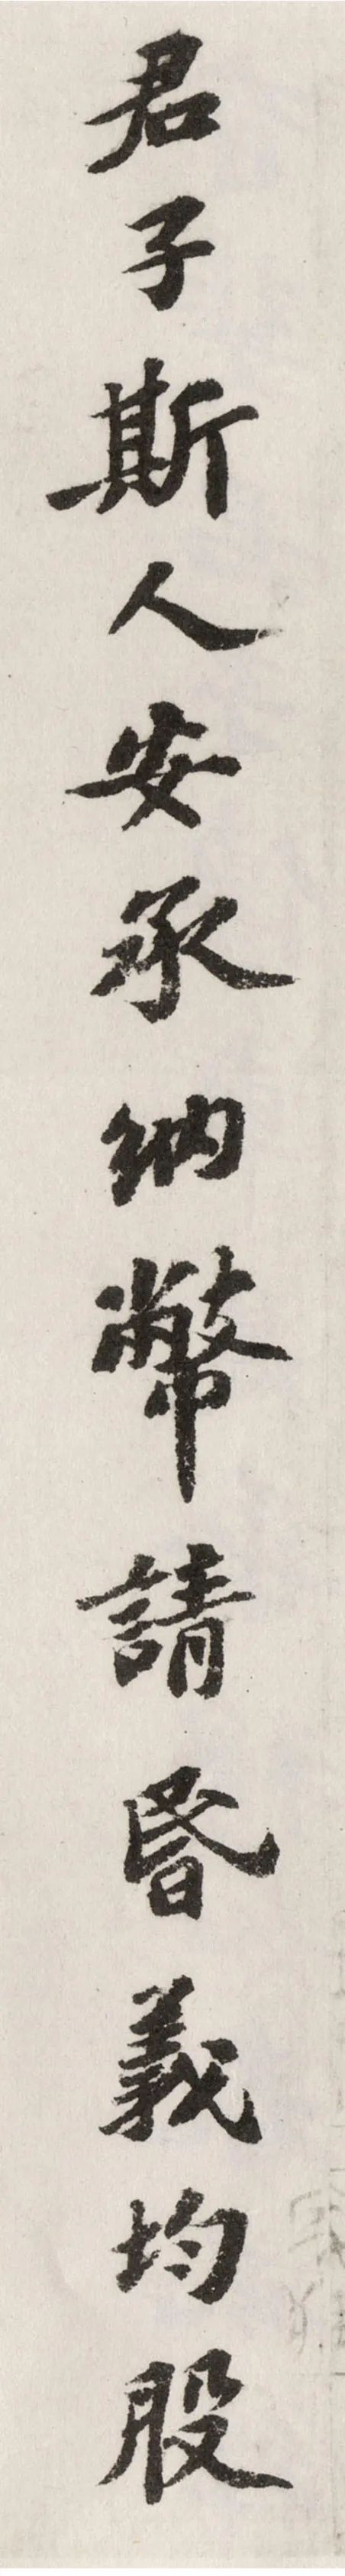 君子斯人安承納幣請昬義均股